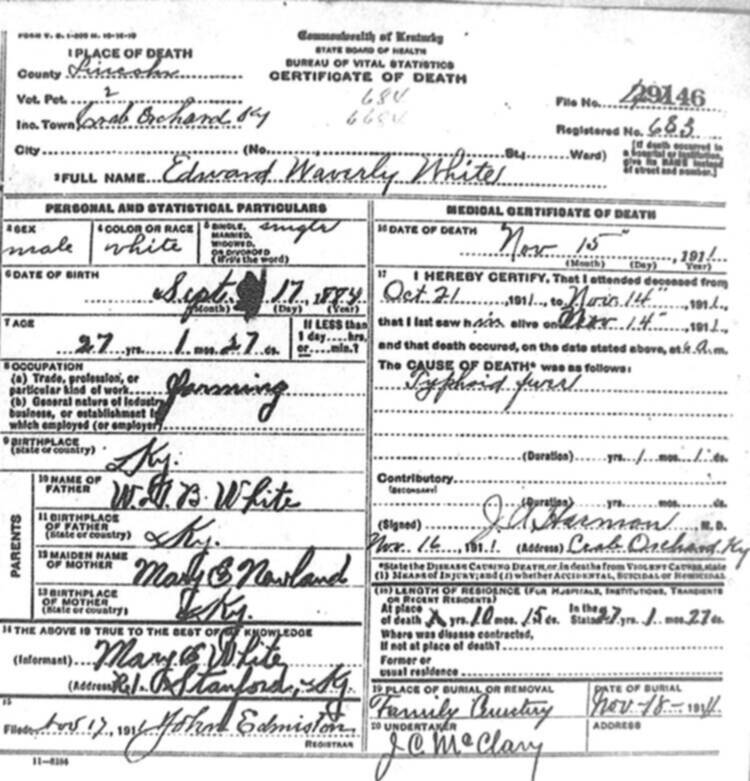 FORM V. S. 1-200 M. 10-16-10
Commonwealth of Kentucky
STATE BOARD OF HEALTH
BUREAU OF VITAL STATISTICS
CERTIFICATE OF DEATH
1 PLACE OF DEATH
County Lincoln
Vot. Pct. 2
684
File No. 29146
Inc. Town Crab Orchard Ky
6684
Registered No. 683
City (No. , St., Ward)
[If death occurred in a hospital or institution give its NAME instead of street and number.]
2 FULL NAME Edward Waverly White
PERSONAL AND STATISTICAL PARTICULARS
3 SEX
male
4 COLOR OR RACE
white
5 SINGLE, MARRIED, WIDOWED, OR DIVORCED (Write the word)
single
6 DATE OF BIRTH
Sept. 17, 1884
(Month) (Day) (Year)
7 AGE
27 yrs. 1 mos. 27 ds.
If LESS than 1 day....hrs. or....min.?
8 OCCUPATION
(a) Trade, profession, or particular kind of work
Farming
(b) General nature of industry business, or establishment in which employed (or employer)
9 BIRTHPLACE
(State or country)
Ky.
PARENTS
10 NAME OF FATHER
W. B. White
11 BIRTHPLACE OF FATHER
(State or country)
Ky.
12 MAIDEN NAME OF MOTHER
Mary E Newland
13 BIRTHPLACE OF MOTHER
(State or country)
Ky.
14 THE ABOVE IS TRUE TO THE BEST OF MY KNOWLEDGE
(Informant) Mary E White
(Address) Stanford, Ky
15
Filed Nov 17, 1911 John Edmiston
REGISTRAR
11-3184
MEDICAL CERTIFICATE OF DEATH
16 DATE OF DEATH
Nov 15", 1911
(Month) (Day) (Year)
17 I HEREBY CERTIFY, That I attended deceased from
Oct 21, 1911, to Nov 14", 1911,
that I last saw him alive on Nov 14", 1911,
and that death occured, on the date stated above, at 6 a.m.
The CAUSE OF DEATH* was as follows:
Typhoid fever
(Duration) yrs. 1 mos. 1 ds.
Contributory
(SECONDARY)
(Duration) yrs. mos. ds.
(Signed) J. A. Harmon M. D.
Nov. 16, 1911 (Address) Crab Orchard Ky
*State the DISEASE CAUSING DEATH, or, in deaths from VIOLENT CAUSES, state
(1) MEANS OF INJURY; and (2) whether ACCIDENTAL, SUICIDAL or HOMICIDAL
(18) LENGTH OF RESIDENCE (FOR HOSPITALS, INSTITUTIONS, TRANSIENTS OR RECENT RESIDENTS)
At place of death yrs. 10 mos. 15 ds. In the State 27 yrs. 1 mos. 27 ds.
Where was disease contracted,
If not at place of death?
Former or
usual residence
19 PLACE OF BURIAL OR REMOVAL
Family Cemetery
DATE OF BURIAL
Nov-18-1911
20 UNDERTAKER
J C McClary
ADDRESS